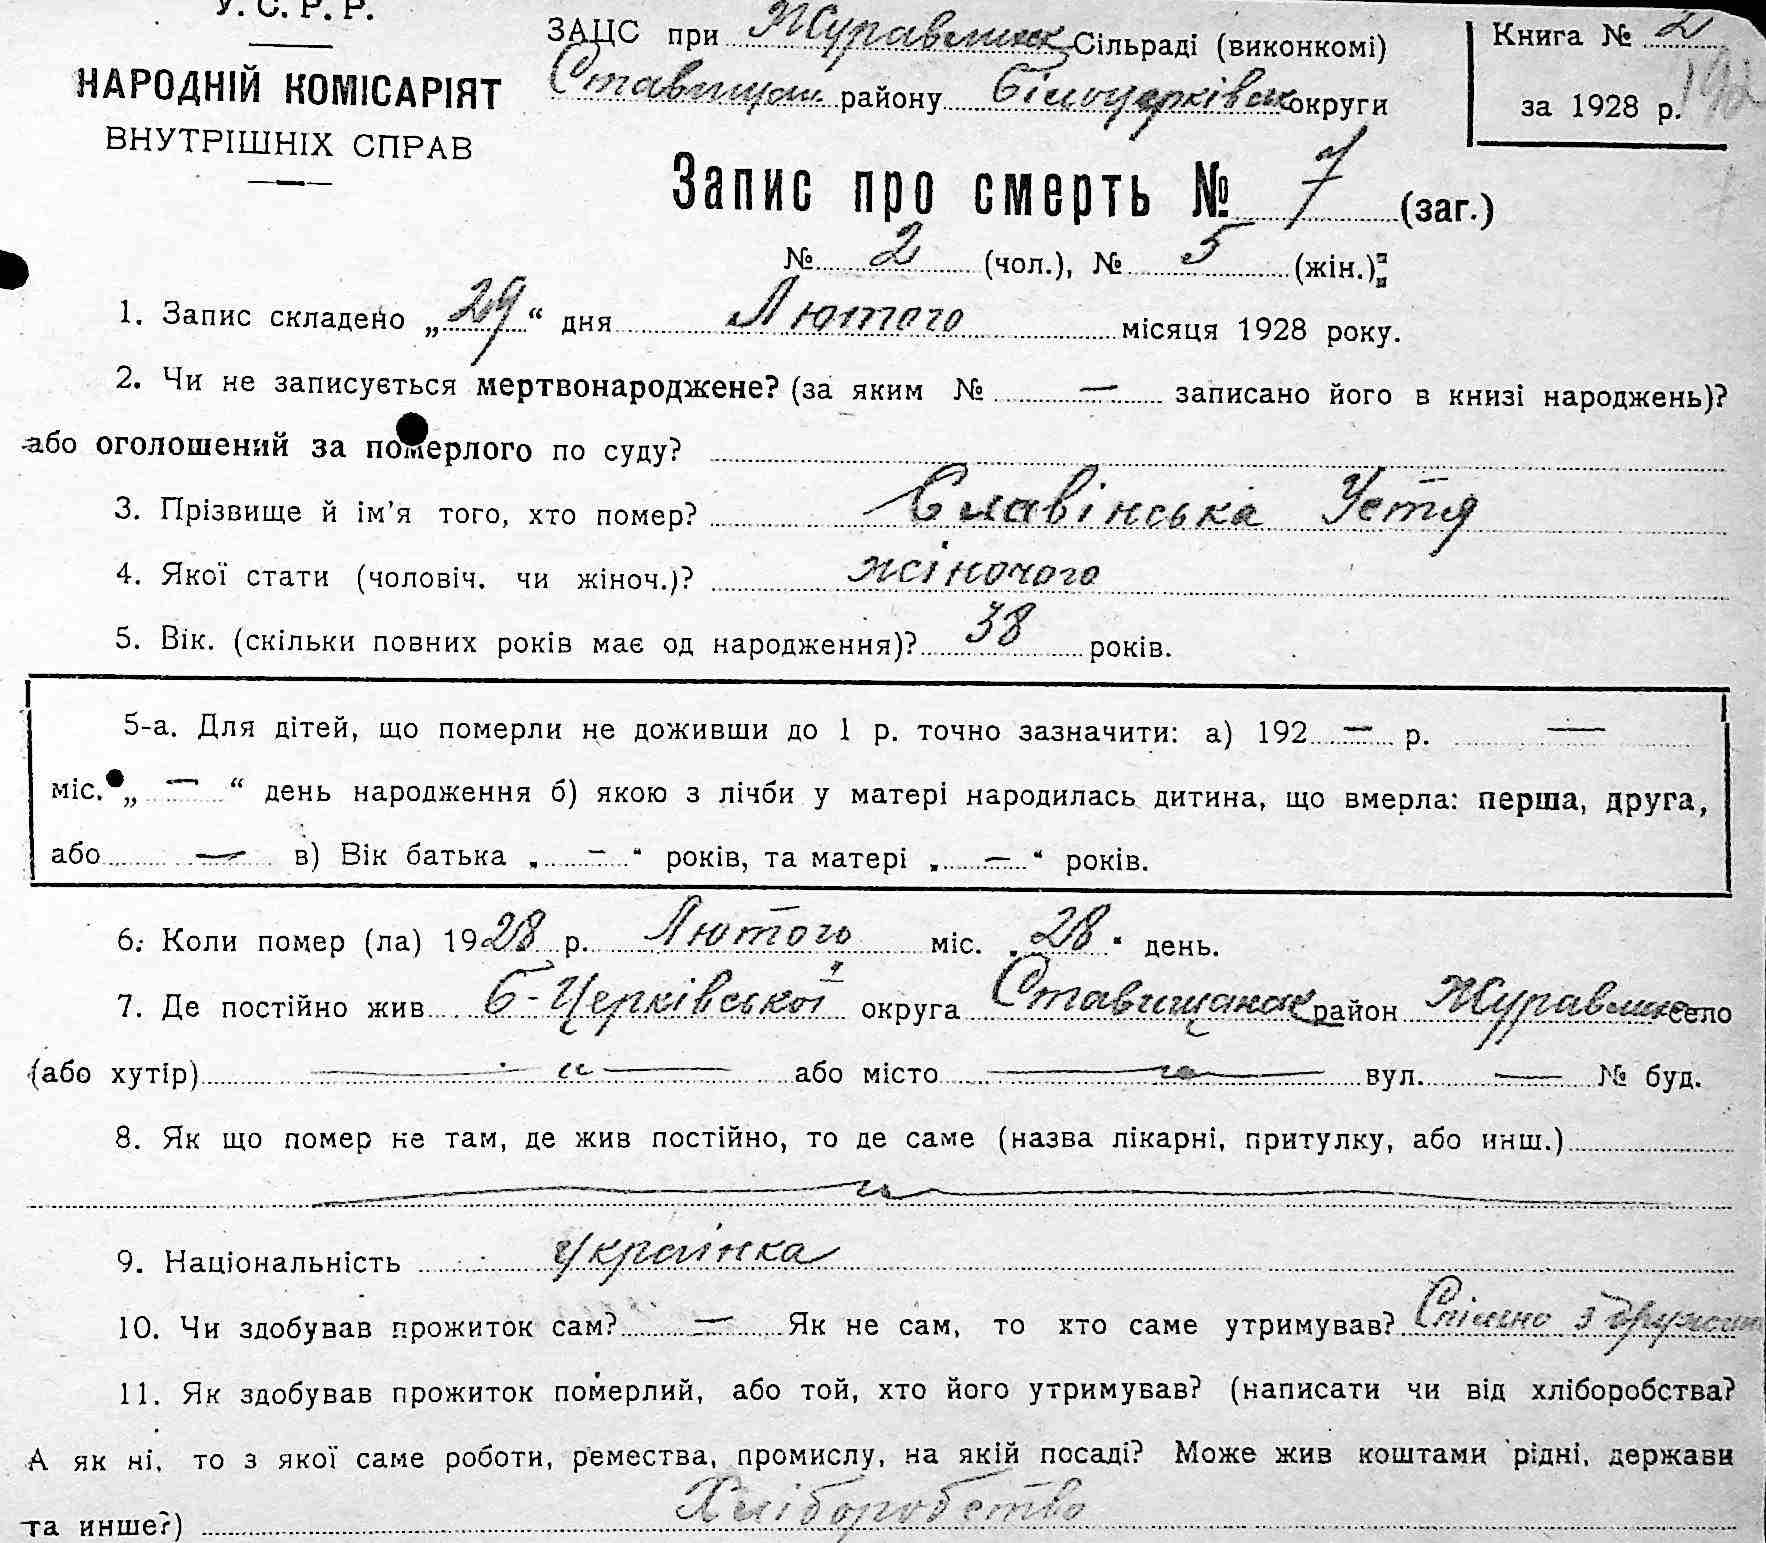 У. С. Р. Р.
НАРОДНІЙ КОМІСАРІЯТ
ВНУТРІШНІХ СПРАВ
ЗАЦС при Журавлинск Сільраді (виконкомі)
Ставищан. району Білоцерківск округи
Книга № 2
за 1928 р.
Запис про смерть № 7 (заг.)
№ 2 (чол.), № 5 (жін.)
1. Запис складено „29“ дня Лютого місяця 1928 року.
2. Чи не записується мертвонароджене? (за яким № — записано його в книзі народжень)?
або оголошений за померлого по суду?
3. Прізвище й ім'я того, хто помер? Славінська Устя
4. Якої стати (чоловіч. чи жіноч.)? жіночого
5. Вік. (скільки повних років має од народження)? 38 років.
5-а. Для дітей, що померли не доживши до 1 р. точно зазначити: а) 192 — р. —
міс. „ — “ день народження б) якою з лічби у матері народилась дитина, що вмерла: перша, друга,
або — в) Вік батька „ — “ років, та матері „ — “ років.
6. Коли помер (ла) 1928 р. Лютого міс. „28“ день.
7. Де постійно жив Б-Церківської округа Ставищанск район Журавлинск село
(або хутір) — або місто — вул. — № буд.
8. Як що помер не там, де жив постійно, то де саме (назва лікарні, притулку, або инш.)
9. Національність Українка
10. Чи здобував прожиток сам? — Як не сам, то хто саме утримував? Спільно з
11. Як здобував прожиток померлий, або той, хто його утримував? (написати чи від хліборобства?
А як ні, то з якої саме роботи, ремества, промислу, на якій посаді? Може жив коштами рідні, держави
та инше?) Хліборобство